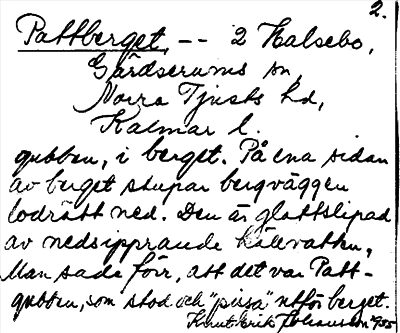 2.
Pattberget, -- 2 Halsebo,
Gärdserums sn,
Norra Tjusts hd,
Kalmar l.
gubben, i berget. På ena sidan
av berget stupar bergväggen
lodrätt ned. Den är glattslipad
av nedsipprande källvatten,
Man sade förr, att det var Patt-
gubben, som stod och "pissa" utför berget.
Knut-Erik Johansson 1955